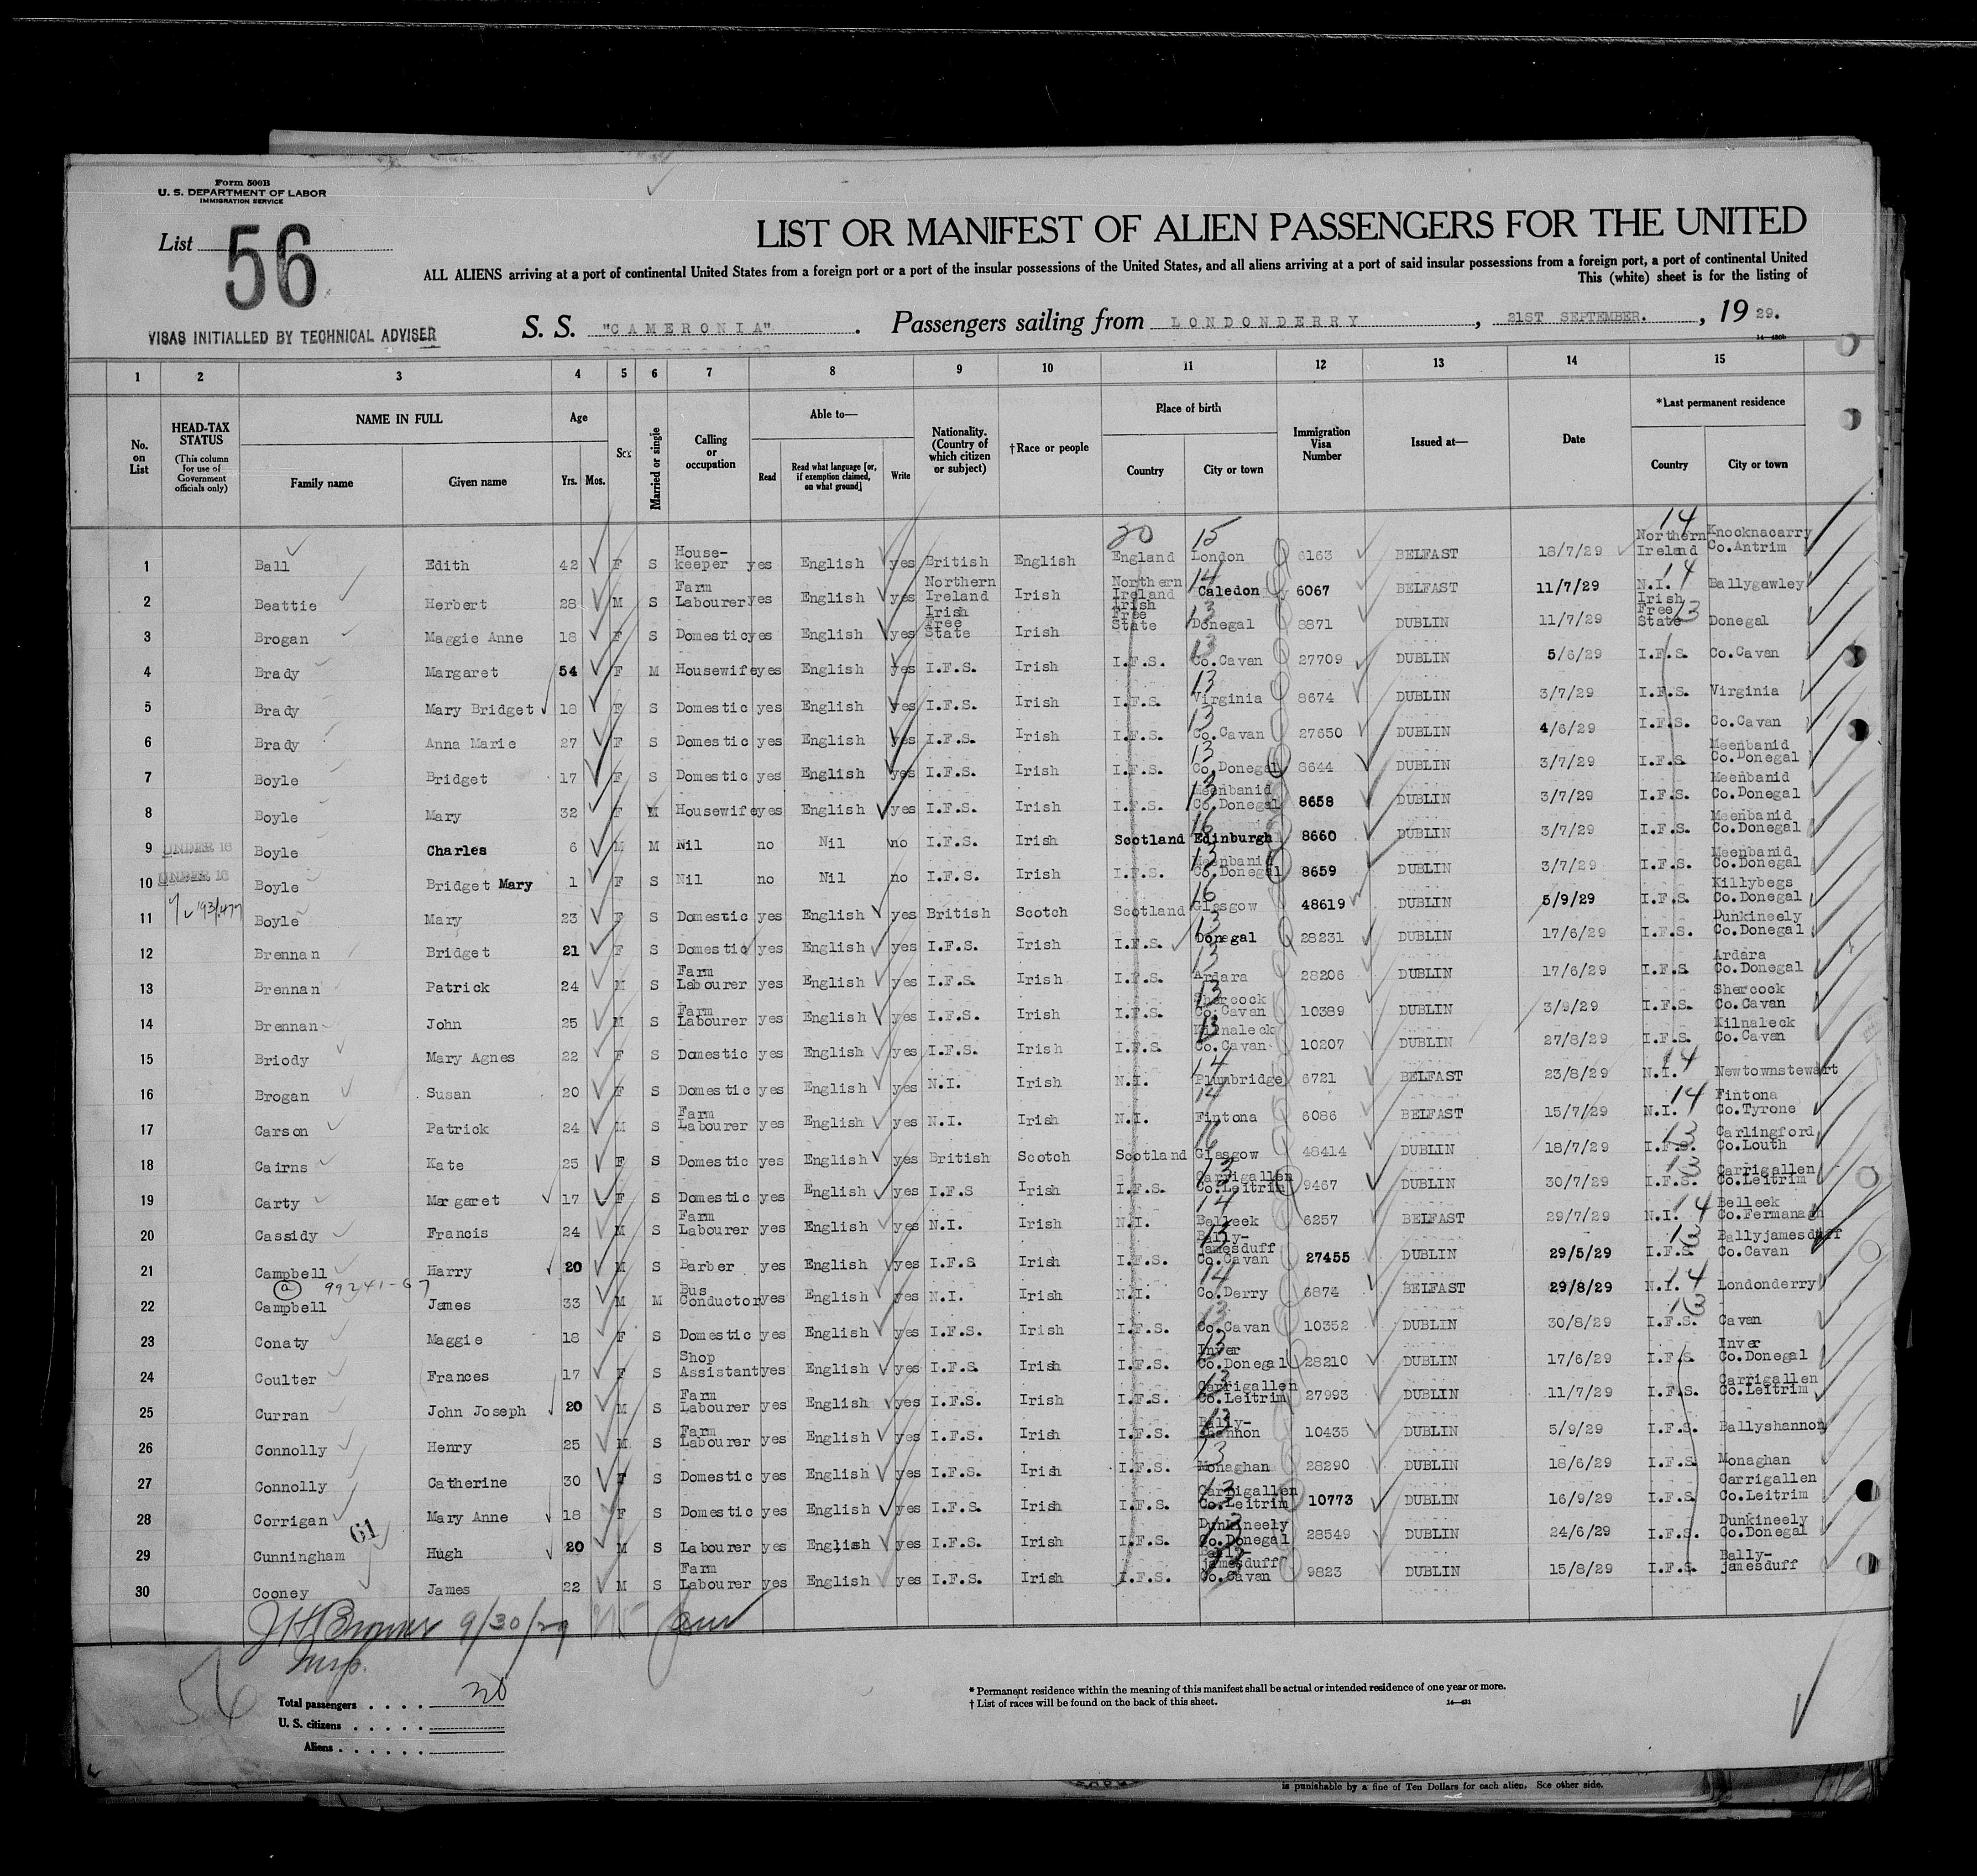 Form 500B
U. S. DEPARTMENT OF LABOR
IMMIGRATION SERVICE
List 56
VISAS INITIALLED BY TECHNICAL ADVISER
LIST OR MANIFEST OF ALIEN PASSENGERS FOR THE UNITED
ALL ALIENS arriving at a port of continental United States from a foreign port or a port of the insular possessions of the United States, and all aliens arriving at a port of said insular possessions from a foreign port, a port of continental United
This (white) sheet is for the listing of
S. S. "CAMERONIA". Passengers sailing from LONDONDERRY, 21ST SEPTEMBER., 19 29.
1 2 3 4 5 6 7 8 9 10 11 12 13 14 15
No. on List
HEAD-TAX STATUS
(This column for use of Government officials only)
NAME IN FULL
Family name Given name
Age
Yrs. Mos.
Sex
Married or single
Calling or occupation
Able to—
Read
Read what language [or, if exemption claimed, on what ground]
Write
Nationality. (Country of which citizen or subject)
†Race or people
Place of birth
Country City or town
Immigration Visa Number
Issued at—
Date
*Last permanent residence
Country City or town
20 15 14
1 Ball Edith 42 F S House-keeper yes English yes British English England London 6163 BELFAST 18/7/29 Northern Ireland Knocknacarry Co.Antrim
2 Beattie Herbert 28 M S Farm Labourer yes English yes Northern Ireland Irish Northern Ireland 14 Caledon 6067 BELFAST 11/7/29 N.I. 14 Ballygawley
3 Brogan Maggie Anne 18 F S Domestic yes English yes Irish Free State Irish Irish Free State 13 Donegal 8871 DUBLIN 11/7/29 Irish Free State 13 Donegal
4 Brady Margaret 54 F M Housewife yes English yes I.F.S. Irish I.F.S. 13 Co.Cavan 27709 DUBLIN 5/6/29 I.F.S. Co.Cavan
5 Brady Mary Bridget 18 F S Domestic yes English yes I.F.S. Irish I.F.S. 13 Virginia 8674 DUBLIN 3/7/29 I.F.S. Virginia
6 Brady Anna Marie 27 F S Domestic yes English yes I.F.S. Irish I.F.S. 13 Co.Cavan 27650 DUBLIN 4/6/29 I.F.S. Co.Cavan
7 Boyle Bridget 17 F S Domestic yes English yes I.F.S. Irish I.F.S. 13 Co.Donegal 8644 DUBLIN 3/7/29 I.F.S. Meenbanid Co.Donegal
8 Boyle Mary 32 F M Housewife yes English yes I.F.S. Irish I.F.S. 13 Meenbanid Co.Donegal 8658 DUBLIN 3/7/29 I.F.S. Meenbanid Co.Donegal
9 UNDER 16 Boyle Charles 6 M M Nil no Nil no I.F.S. Irish Scotland 16 Edinburgh 8660 DUBLIN 3/7/29 I.F.S. Meenbanid Co.Donegal
10 UNDER 16 Boyle Bridget Mary 1 F S Nil no Nil no I.F.S. Irish I.F.S. 13 Meenbanid Co.Donegal 8659 DUBLIN 3/7/29 I.F.S. Meenbanid Co.Donegal
11 Boyle Mary 23 F S Domestic yes English yes British Scotch Scotland 16 Glasgow 48619 DUBLIN 5/9/29 I.F.S. Killybegs Co.Donegal
12 Brennan Bridget 21 F S Domestic yes English yes I.F.S. Irish I.F.S. 13 Donegal 28231 DUBLIN 17/6/29 I.F.S. Dunkineely Co.Donegal
13 Brennan Patrick 24 M S Farm Labourer yes English yes I.F.S. Irish I.F.S. 13 Ardara 28206 DUBLIN 17/6/29 I.F.S Ardara Co.Donegal
14 Brennan John 25 M S Farm Labourer yes English yes I.F.S. Irish I.F.S. 13 Shercock Co.Cavan 10389 DUBLIN 3/9/29 I.F.S. Shercock Co.Cavan
15 Briody Mary Agnes 22 F S Domestic yes English yes I.F.S. Irish I.F.S. 13 Kilnaleck Co.Cavan 10207 DUBLIN 27/8/29 I.F.S. Kilnaleck Co.Cavan
16 Brogan Susan 20 F S Domestic yes English yes N.I. Irish N.I. 14 Plumbridge 6721 BELFAST 23/8/29 N.I. 14 Newtownstewart
17 Carson Patrick 24 M S Farm Labourer yes English yes N.I. Irish N.I. 14 Fintona 6086 BELFAST 15/7/29 N.I. 14 Fintona Co.Tyrone
18 Cairns Kate 25 F S Domestic yes English yes British Scotch Scotland 16 Glasgow 48414 DUBLIN 18/7/29 I.F.S. 13 Carlingford Co.Louth
19 Carty Margaret 17 F S Domestic yes English yes I.F.S Irish I.F.S. 13 Carrigallen Co.Leitrim 9467 DUBLIN 30/7/29 I.F.S. 13 Carrigallen Co.Leitrim
20 Cassidy Francis 24 M S Farm Labourer yes English yes N.I. Irish N.I. 14 Belleek 6257 BELFAST 29/7/29 N.I. 14 Belleek Co.Fermanagh
21 Campbell Harry 20 M S Barber yes English yes I.F.S Irish I.F.S. 13 Bally-jamesduff Co.Cavan 27455 DUBLIN 29/5/29 I.F.S. 13 Ballyjamesduff Co.Cavan
99241-67
22 Campbell James 33 M M Bus Conductor yes English yes N.I. Irish N.I. 14 Co.Derry 6874 BELFAST 29/8/29 N.I. 14 Londonderry
23 Conaty Maggie 18 F S Domestic yes English yes I.F.S. Irish I.F.S. 13 Co.Cavan 10352 DUBLIN 30/8/29 I.F.S. 13 Cavan
24 Coulter Frances 17 F S Shop Assistant yes English yes I.F.S Irish I.F.S. 13 Inver Co.Donegal 28210 DUBLIN 17/6/29 I.F.S. Inver Co.Donegal
25 Curran John Joseph 20 M S Farm Labourer yes English yes I.F.S. Irish I.F.S. 13 Carrigallen Co.Leitrim 27993 DUBLIN 11/7/29 I.F.S. Carrigallen Co.Leitrim
26 Connolly Henry 25 M S Farm Labourer yes English yes I.F.S. Irish I.F.S. 13 Bally-shannon 10435 DUBLIN 5/9/29 I.F.S. Ballyshannon
27 Connolly Catherine 30 F S Domestic yes English yes I.F.S. Irish I.F.S. 13 Monaghan 28290 DUBLIN 18/6/29 I.F.S Monaghan
28 Corrigan Mary Anne 18 F S Domestic yes English yes I.F.S. Irish I.F.S. 13 Carrigallen Co.Leitrim 10773 DUBLIN 16/9/29 I.F.S Carrigallen Co.Leitrim
61
29 Cunningham Hugh 20 M S Labourer yes English yes I.F.S. Irish I.F.S. 13 Dunkineely Co.Donegal 28549 DUBLIN 24/6/29 I.F.S. Dunkineely Co.Donegal
30 Cooney James 22 M S Farm Labourer yes English yes I.F.S. Irish I.F.S. 13 Bally-jamesduff Co.Cavan 9823 DUBLIN 15/8/29 I.F.S. Bally-jamesduff
9/30/29
Insp.
56
Total passengers 30
U. S. citizens
Aliens
* Permanent residence within the meaning of this manifest shall be actual or intended residence of one year or more.
† List of races will be found on the back of this sheet.
14—431
is punishable by a fine of Ten Dollars for each alien. See other side.